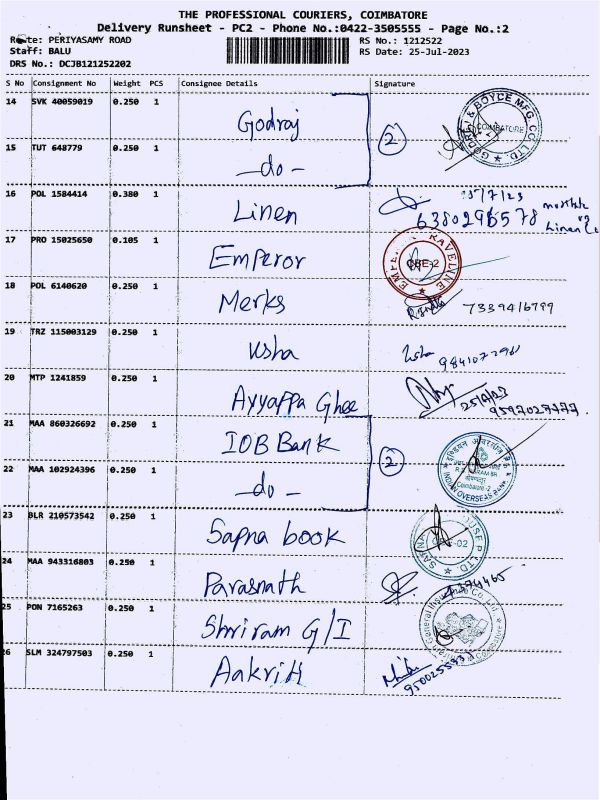 THE PROFESSIONAL COURIERS, COIMBATORE
Delivery Runsheet - PC2 - Phone No.:0422-3505555 - Page No.:2
Route: PERIYASAMY ROAD
RS No.: 1212522
Staff: BALU
RS Date: 25-Jul-2023
DRS No.: DCJB121252202
S No Consignment No Weight PCS Consignee Details Signature
14 SVK 40059019 0.250 1 Godrej
GODREJ & BOYCE MFG. CO. LTD. COIMBATORE
2
15 TUT 648779 0.250 1 -do-
16 POL 1584414 0.380 1 Linen
6380296578
Linen
17 PRO 15025650 0.105 1 Emperor
RAVELINE
CBE-2
18 POL 6140620 0.250 1 Merks
7339416799
19 TRZ 115003129 0.250 1 Usha
Usha
20 MTP 1241859 0.250 1 Ayyappa Ghee
25/7/23
9597027777
21 MAA 860326692 0.250 1 IOB Bank
2
INDIAN OVERSEAS BANK
Coimbatore-2
22 MAA 102924396 0.250 1 -do-
23 BLR 210573542 0.250 1 Sapna book
24 MAA 943316803 0.250 1 Parasnath
25 PON 7165263 0.250 1 Shriram G/I
General Insurance Co. Ltd.
26 SLM 324797503 0.250 1 Aakriti